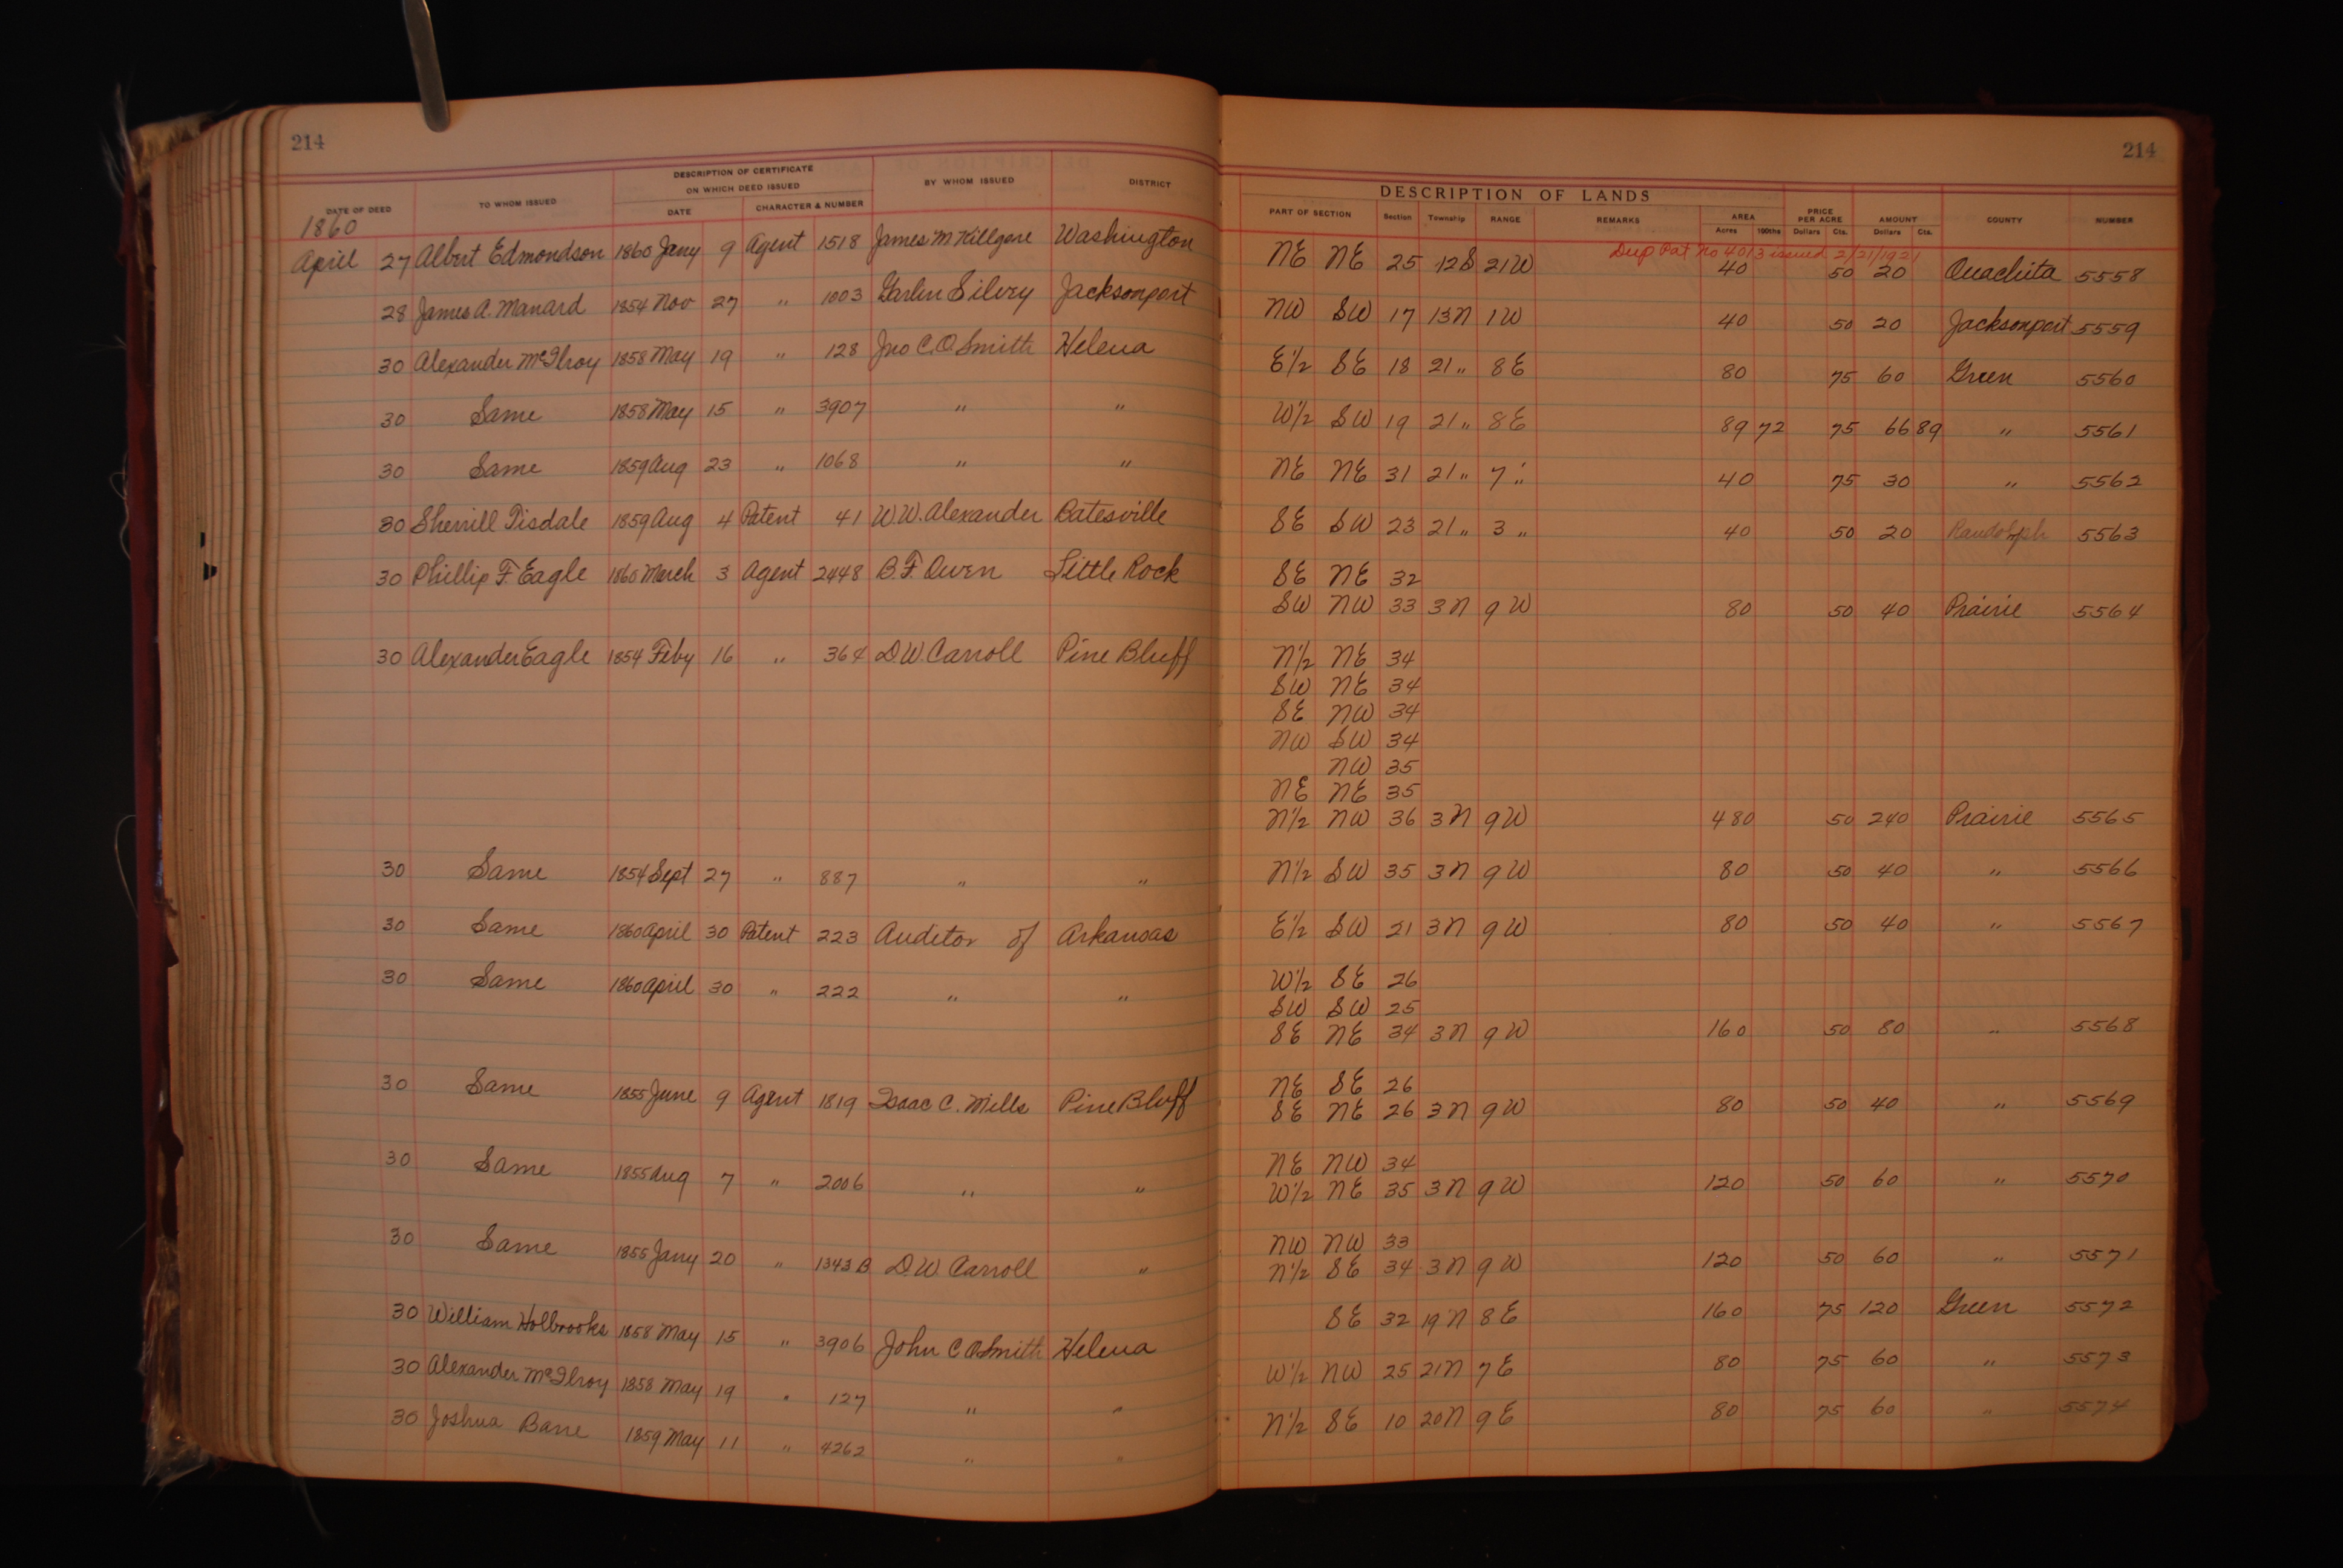 214
214
DATE OF DEED TO WHOM ISSUED DESCRIPTION OF CERTIFICATE ON WHICH DEED ISSUED DATE CHARACTER & NUMBER BY WHOM ISSUED DISTRICT DESCRIPTION OF LANDS PART OF SECTION Section Township RANGE REMARKS AREA Acres 100ths PRICE PER ACRE Dollars Cts. AMOUNT Dollars Cts. COUNTY NUMBER
1860
Dup Pat No 4013 issued 2/21/1921
April 27 Albert Edmondson 1860 Jany 9 Agent 1518 James M Killgore Washington NE NE 25 12S 21W 40 50 20 Ouachita 5558
28 James A. Manard 1854 Nov 27 " 1003 Garlin Silvey Jacksonport NW SW 17 13N 1W 40 50 20 Jacksonport 5559
30 Alexander McIlroy 1858 May 19 " 128 Jno C. O. Smith Helena E1/2 SE 18 21 " 8E 80 75 60 Green 5560
30 Same 1858 May 15 " 3907 " " W1/2 SW 19 21 " 8E 89 72 75 66 89 " 5561
30 Same 1859 Aug 23 " 1068 " " NE NE 31 21 " 7 " 40 75 30 " 5562
30 Sherrill Tisdale 1859 Aug 4 Patent 41 W. W. Alexander Batesville SE SW 23 21 " 3 " 40 50 20 Randolph 5563
30 Phillip F Eagle 1860 March 3 Agent 2448 B. F. Owen Little Rock SE NE 32
SW NW 33 3N 9W 80 50 40 Prairie 5564
30 Alexander Eagle 1854 Feby 16 " 364 D. W. Carroll Pine Bluff N1/2 NE 34
SW NE 34
SE NW 34
NW SW 34
NW 35
NE NE 35
N1/2 NW 36 3N 9W 480 50 240 Prairie 5565
30 Same 1854 Sept 27 " 887 " " N1/2 SW 35 3N 9W 80 50 40 " 5566
30 Same 1860 April 30 Patent 223 Auditor of Arkansas E1/2 SW 21 3N 9W 80 50 40 " 5567
30 Same 1860 April 30 " 222 " " W1/2 SE 26
SW SW 25
SE NE 34 3N 9W 160 50 80 " 5568
30 Same 1855 June 9 Agent 1819 Isaac C. Mills Pine Bluff NE SE 26
SE NE 26 3N 9W 80 50 40 " 5569
30 Same 1855 Aug 7 " 2006 " " NE NW 34
W1/2 NE 35 3N 9W 120 50 60 " 5570
30 Same 1855 Jany 20 " 1343 B D. W. Carroll " NW NW 33
N1/2 SE 34 3N 9W 120 50 60 " 5571
30 William Holbrooks 1858 May 15 " 3906 John C O Smith Helena SE 32 19N 8E 160 75 120 Green 5572
30 Alexander McIlroy 1858 May 19 " 127 " " W1/2 NW 25 21N 7E 80 75 60 " 5573
30 Joshua Bane 1859 May 11 " 4262 " " N1/2 SE 10 20N 9E 80 75 60 " 5574